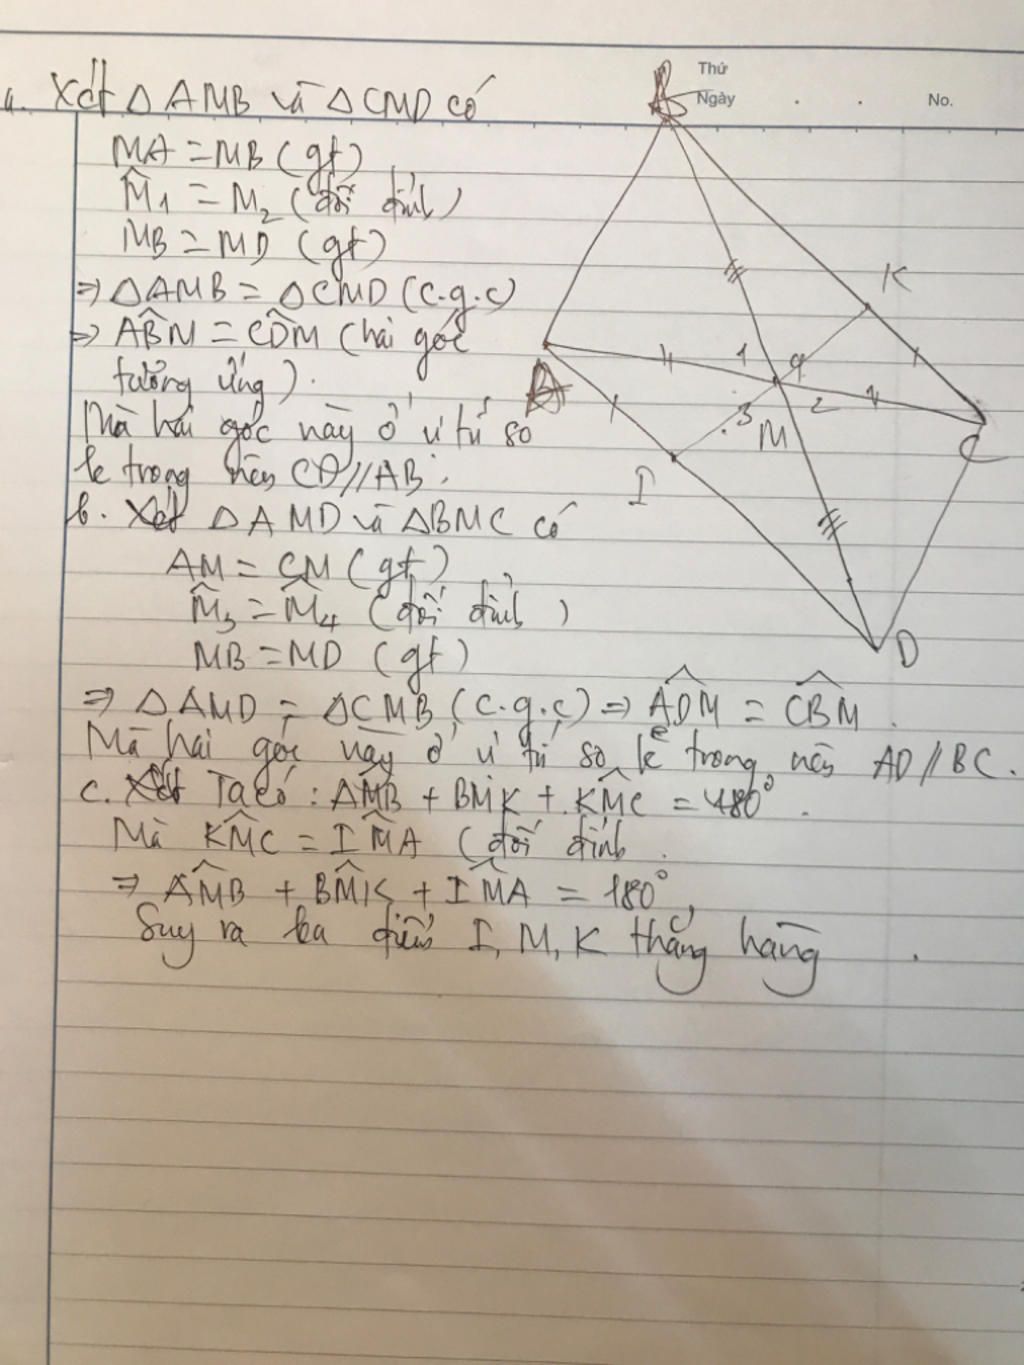 Thứ
Ngày . . No.
a. Xét △AMB và △CMD có
MA = MB (gt)
M̂1 = M2 (đối đỉnh)
MB = MD (gt)
⇒ △AMB = △CMD (c.g.c)
⇒ AB̂M = CD̂M (hai góc
tương ứng).
Mà hai góc này ở vị trí so
le trong nên CD//AB.
b. Xét △AMD và △BMC có
AM = CM (gt)
M̂3 = M̂4 (đối đỉnh)
MB = MD (gt)
⇒ △AMD = △CMB (c.g.c) ⇒ AD̂M = CB̂M.
Mà hai góc này ở vị trí so le trong nên AD//BC.
c. Xét Ta có: AM̂B + BM̂K + KM̂C = 180°.
Mà KM̂C = IM̂A (đối đỉnh.
⇒ AM̂B + BM̂K + IM̂A = 180°,
Suy ra ba điểm I, M, K thẳng hàng.
B
K
A
1
4
3
2
M
C
I
D